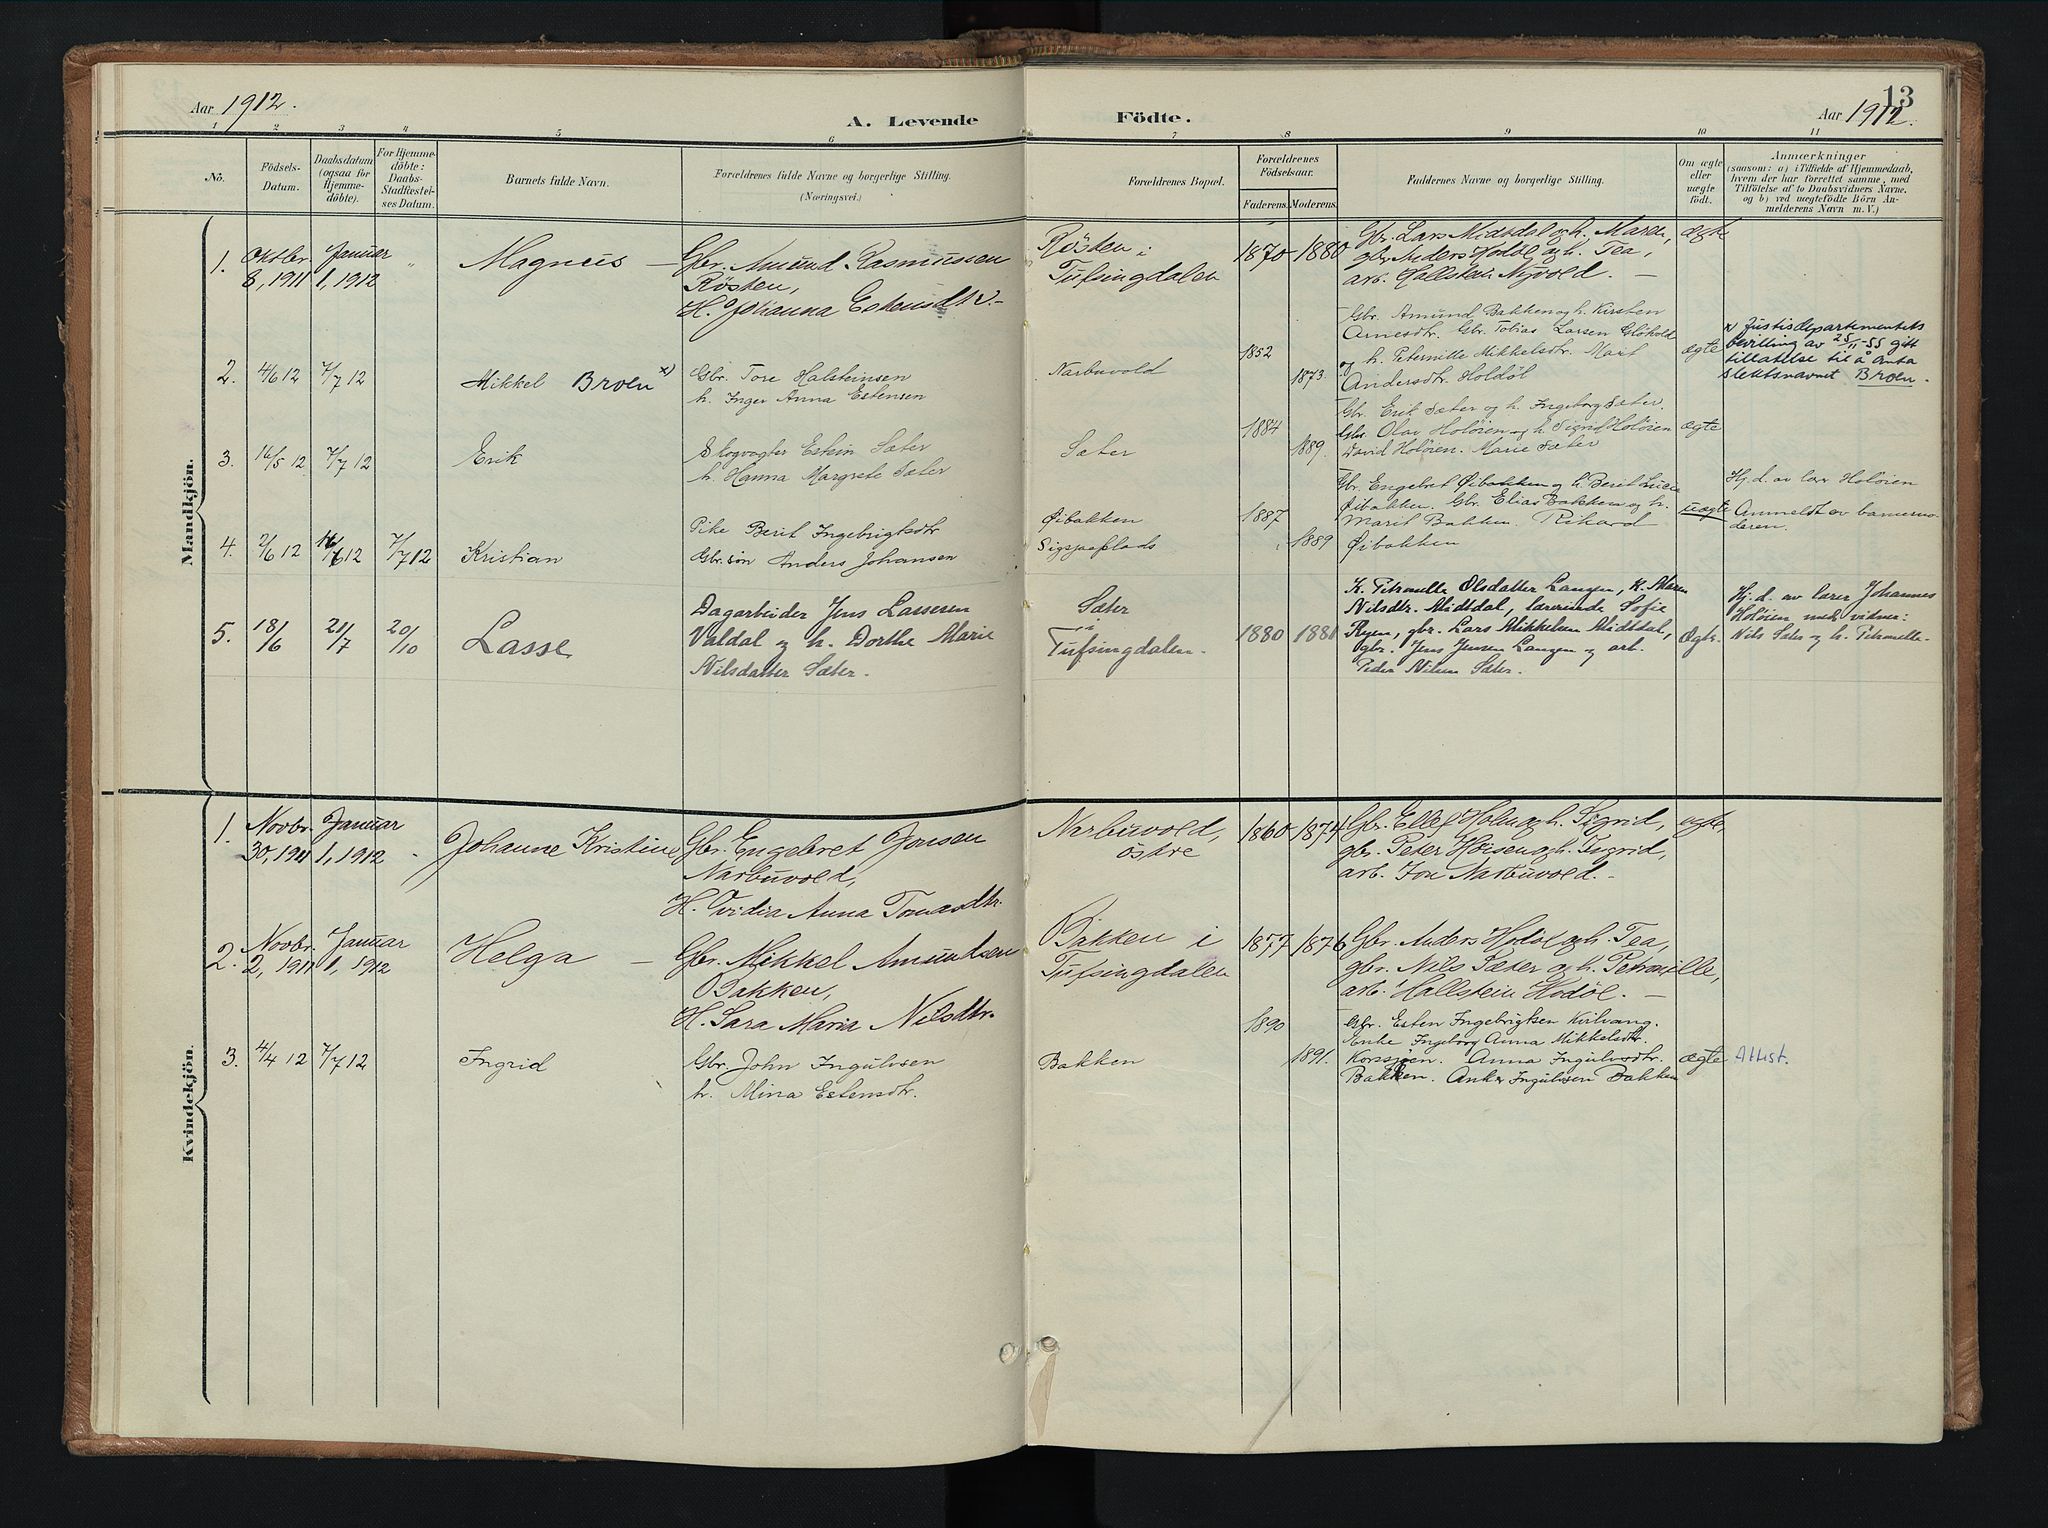 Aar 1912.
A. Levende Födte.
13
Aar 1912.
1 2 3 4 5 6 7 8 9 10 11
No.
Födsels-
Datum.
Daabsdatum
(ogsaa for
Hjemme-
döbte).
For Hjemme-
döbte:
Daabs-
Stadfæstel-
ses Datum.
Barnets fulde Navn.
Forældrenes fulde Navne og borgerlige Stilling.
(Næringsvei.)
Forældrenes Bopæl.
Forældrenes
Födselsaar.
Faderens.
Moderens.
Faddernes Navne og borgerlige Stilling.
Om ægte
eller
uægte
födt.
Anmærkninger
(saasom: a) i Tilfælde af Hjemmedaab,
hvem der har forrettet samme, med
Tilföielse af to Daabsvidners Navne,
og b) ved uægtefödte Börn An-
melderens Navn m. V.)
Mandkjön.
1.
Oktbr.
8, 1911
Januar
1, 1912
"
Magnus –
Gbr. Amund Rasmussen
Rösten,
H. Johanna Estensdtr.–
Rösten i
Tufsingdalen
1870
1880
Gbr. Lars Midtdal og h. Maren,
gbr. Anders Hodöl og h. Tea,
arb. Hallstein Nyvold. –
ægte
2.
4/6 12
7/7 12
Mikkel Broen x)
Gbr. Tore Halsteinsen
h. Inger Anna Estensen
Narbuvold
1852
1873.
Gbr. Amund Bakken og h. Kirsten
Arnesdtr. Gbr. Tobias Larsen
og h. Peternille Mikkelsdtr. Marit
Andersdtr. Holdöl
ægte
x) Justisdepartementets
bevilling av 25/11-55 gitt
tillatelse til å anta
slektsnavnet Broen.
3.
16/5 12
7/7 12
Erik
Skogvagter Estein Sæter
h. Hanna Margrete Sæter
Sæter
1884
1889.
Gbr. Erik Sæter og h. Ingeborg Sæter.
Gbr. Olav Holöien og h. Sigrid Holöien
David Holöien. Marie Sæter
ægte
4.
2/6 12
16/6 12
7/7 12
Kristian
Pike Berit Ingebrigtsdtr
Gbr.sön Anders Johansen
Øibakken
1887
1889
Gbr. Engebret Øibakken og h. Berit Lucie
Øibakken. Gbr. Elias Bakken og h.
Marit Bakken. Rikard
Øibakken
uægte
Hj.d. av lærer Holöien
Anmeldt av barnemo-
deren.
5.
18/6
21/7
20/10
Lasse
Dagarbeider Jens Lassesen
Valdal og h. Dorthe Marie
Nilsdatter Sæter.
Sæter
i
Tufsingdalen.
1880
1881
K. Petronelle Olsdatter Langen, K. Maren
Nilsdtr. Midtdal, lærerinde Sofie
Ryen, gbr. Lars Mikkelsen Midtdal,
gbr. Jens Jensen Langen og arb.
Peder Nilsen Sæter.
Ægte.
Hj.d. av lærer Johannes
Holöien med vidner:
Nils Sæter og h. Petronelle.
Kvindekjön.
1.
Novbr.
30, 1911
Januar
1, 1912
Johanne Kristine
Gbr. Engebret Jonsen
Narbuvold,
H. Ovidia Anna Tomasdtr.
Narbuvold,
östre
1860
1874
Gbr. Ellef Holm og h. Sigrid,
gbr. Peter Höisen og h. Ingrid,
arb. Jon Narbuvold. –
ægte,
2.
Novbr.
2, 1911
Januar
1, 1912
Helga –
Gbr. Mikkel Amundsen
Bakken,
H. Sara Maria Nilsdtr.
Bakken i
Tufsingdalen
1877
1876
Gbr. Anders Hodöl og h. Tea,
gbr. Nils Sæter og h. Petronille,
arb. Hallstein Hodöl. –
3.
4/4 12
7/7 12
Ingrid
Gbr. John Ingulvsen
h. Mina Estensdtr.
Bakken
1890
1891.
Gbr. Esten Ingebrigtsen Kirlvang.
Enke Ingeborg Anna Mikkelsdtr.
Korssjöen. Anna Ingulvsdtr.
Bakken. Anker Ingulvsen Bakken
ægte
Attest.